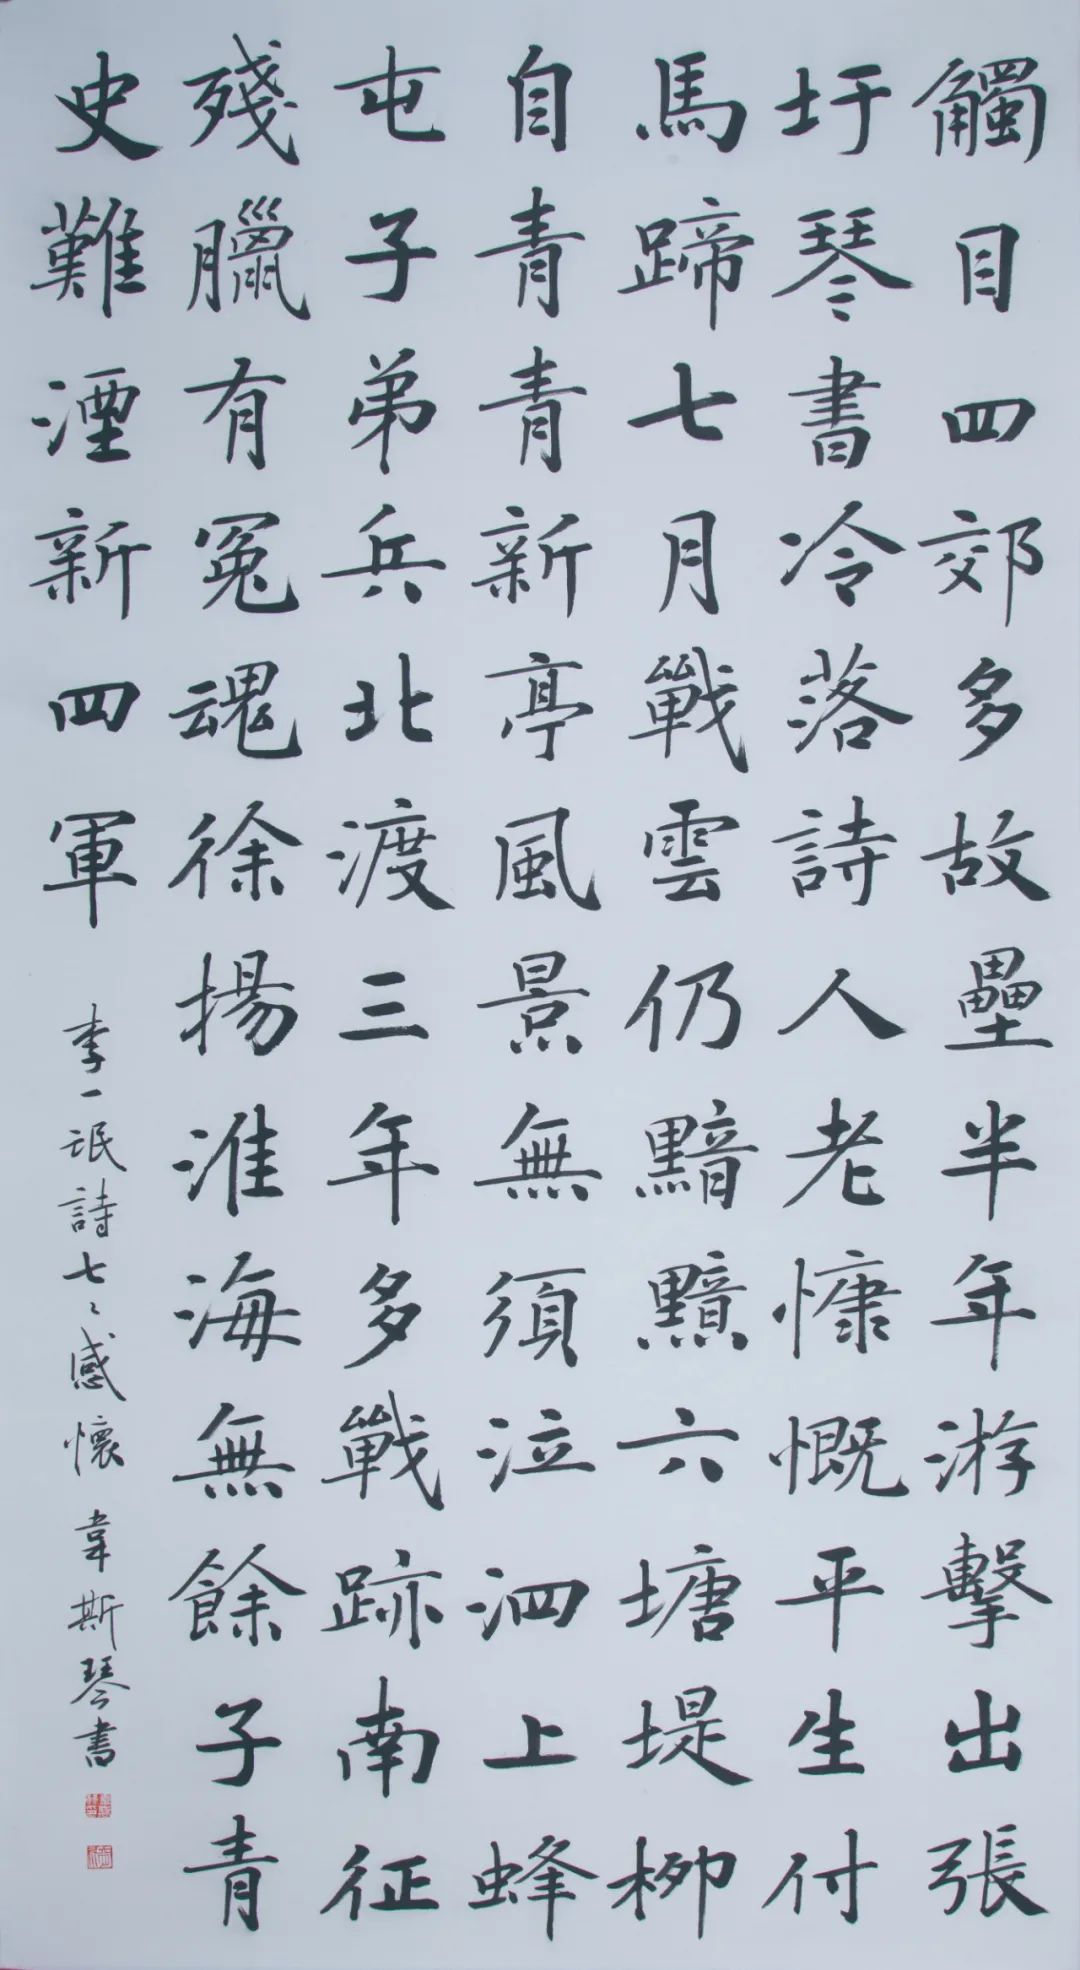 觸目四郊多故壘半年游擊出張
圩琴書冷落詩人老慷慨平生付
馬蹄七月戰雲仍黯黯六塘堤柳
自青青新亭風景無須泣泗上蜂
屯子弟兵北渡三年多戰跡南征
殘臘有冤魂徐揚淮海無餘子青
史難湮新四軍
李一氓詩七七感懷 韋斯琴書